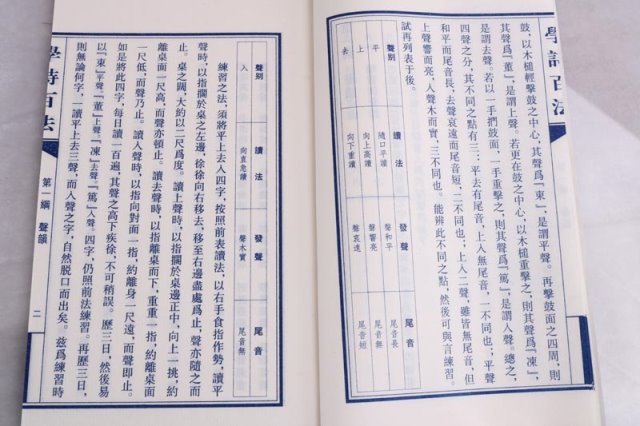 學詩百法
鼓,以木槌輕擊鼓之中心,其聲爲「東」,是謂平聲。再擊鼓面之四周,則
其聲爲「董」,是謂上聲。若更在鼓之中心,以木槌重擊之,則其聲爲「凍」,
是謂去聲。若以一手捫鼓面,一手重擊之,則其聲爲「篤」,是謂入聲。總之,
四聲之分,其不同之點有三:平去有尾音,上入無尾音,一不同也;平聲
和平而尾音長,去聲哀遠而尾音短,二不同也;上入二聲,雖皆無尾音,但
上聲響而亮,入聲木而實,三不同也。能辨此不同之點,然後可與言練習。
試再列表于後。
聲别 讀法 發聲 尾音
平 隨口平讀 聲和平 尾音長
上 向上高讀 聲響亮 尾音無
去 向下重讀 聲哀遠 尾音短
聲别 讀法 發聲 尾音
入 向直急讀 聲木實 尾音無
練習之法,須將平上去入四字,按照前表讀法,以右手食指作勢,讀平
聲時,以指擱於桌之左邊,徐徐向右移去,移至右邊盡處爲止,聲亦隨之而
止。桌之闊,大約以二尺爲度。讀上聲時,以指擱於桌邊正中,向上一挑,約
離桌面一尺高,而聲亦頓止。讀去聲時,以指離桌而下,重重一指,約離桌面
一尺低,而聲乃止。讀入聲時,以指向對面一指,約離身一尺遠,而聲即止。
如是將此四字,每日讀一百遍,其聲之高下疾徐,不可稍誤。歷三日,然後易
以「東」平聲「董」上聲「凍」去聲「篤」入聲四字,仍照前法練習。再歷三日,
則無論何字,一讀平上去三聲,而入聲之字,自然脱口而出矣。兹爲練習時
學詩百法 第一綱 聲韻 二